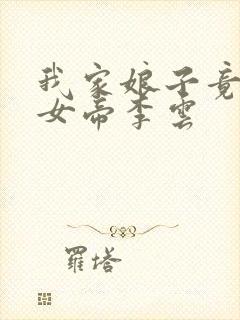 我家娘子竟
女帝李雲
羅塔